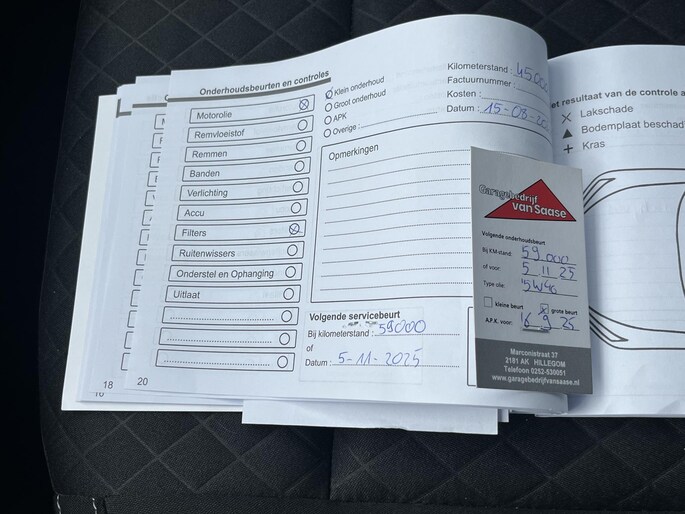 Onderhoudsbeurten en controles
Motorolie
Remvloeistof
Remmen
Banden
Verlichting
Accu
Filters
Ruitenwissers
Onderstel en Ophanging
Uitlaat
Klein onderhoud
Groot onderhoud
APK
Overige :
Kilometerstand :
Factuurnummer :
Kosten :
Datum : 15-08-
Opmerkingen
Volgende servicebeurt
Bij kilometerstand : 59000
of
Datum : 5-11-2025
18
20
Garagebedrijf
van Saase
Volgende onderhoudsbeurt
Bij KM-stand: 59 000
of voor: 5 11 25
Type olie: 5W40
kleine beurt grote beurt
A.P.K. voor: 16 9 25
Marconistraat 37
2181 AK HILLEGOM
Telefoon 0252-530051
www.garagebedrijfvansaase.nl
et resultaat van de controle a
Lakschade
Bodemplaat beschad
Kras